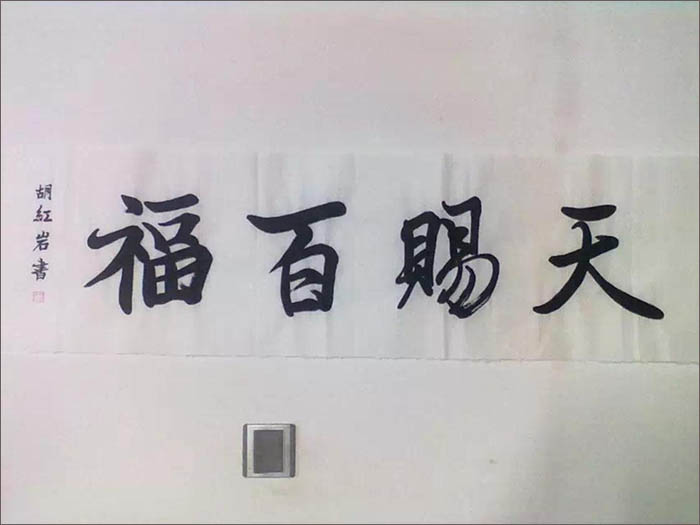 天賜百福
胡紅岩書